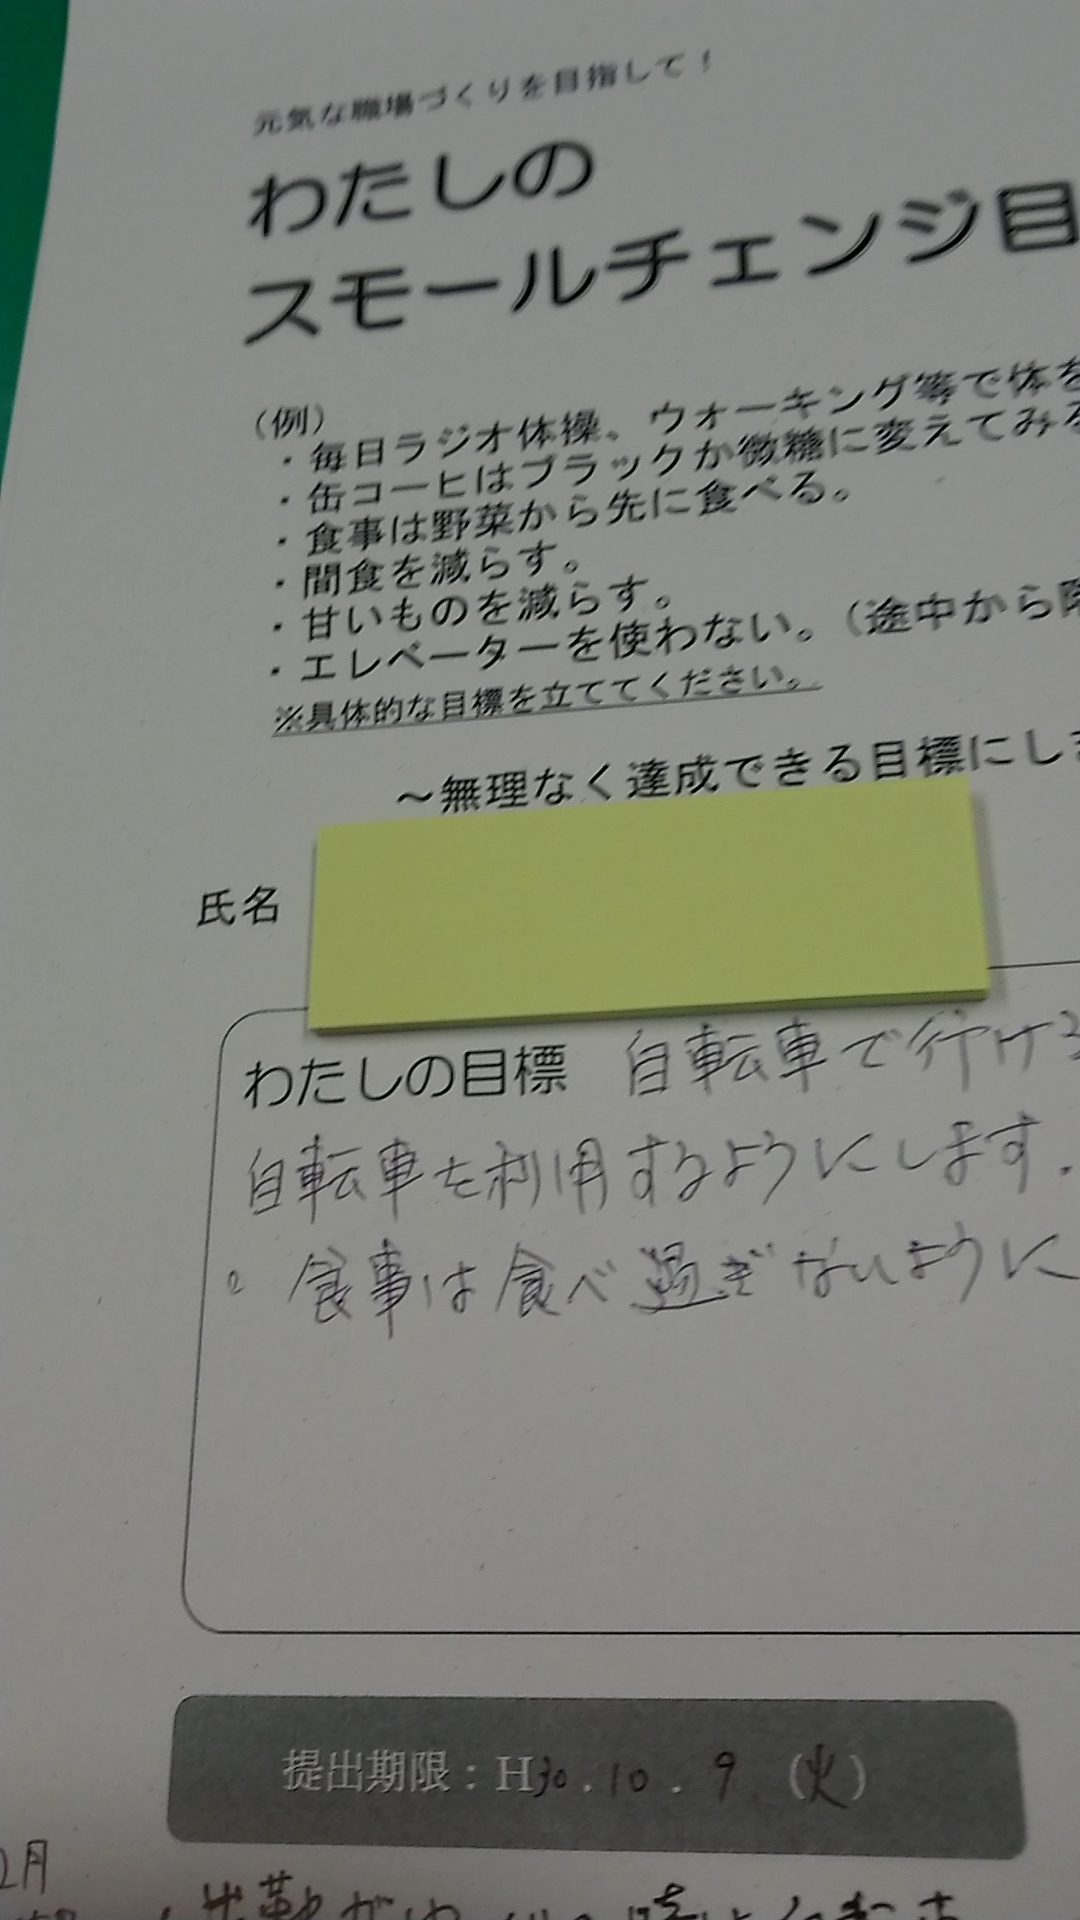 元気な職場づくりを目指して！
わたしの
スモールチェンジ目
（例）
・毎日ラジオ体操、ウォーキング等で体を
・缶コーヒはブラックか微糖に変えてみる
・食事は野菜から先に食べる。
・間食を減らす。
・甘いものを減らす。
・エレベーターを使わない。（途中から階
※具体的な目標を立ててください。
～無理なく達成できる目標にしま
氏名
わたしの目標 自転車で行ける
自転車を利用するようにします.
。食事は食べ過ぎないように
提出期限：H30.10.9（火）
2月